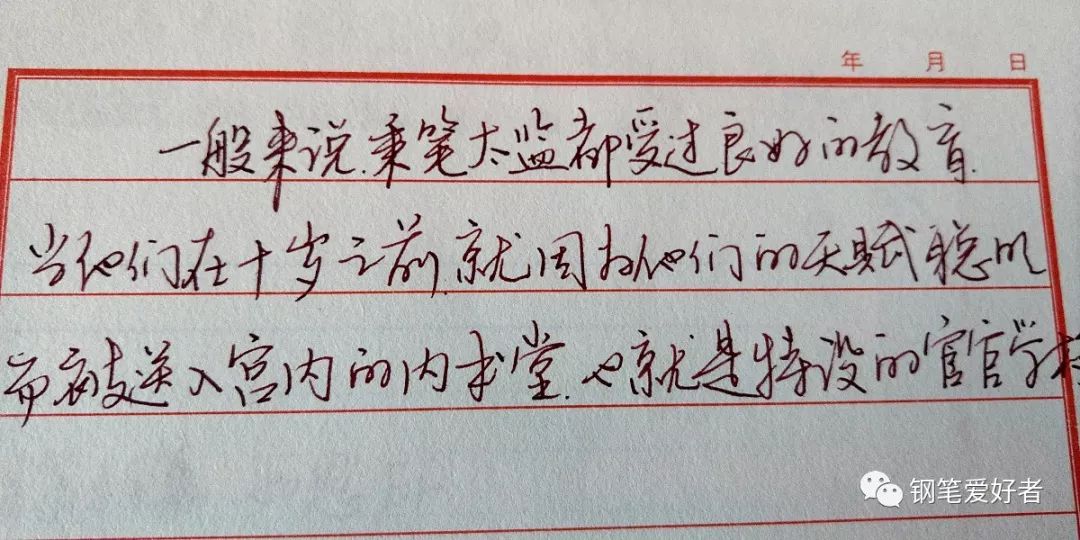 年 月 日
一般来说.秉笔太监都受过良好的教育.
当他们在十岁之前.就因为他们的天赋聪明
而被送入宫内的内书堂.也就是特设的宦官学校
钢笔爱好者